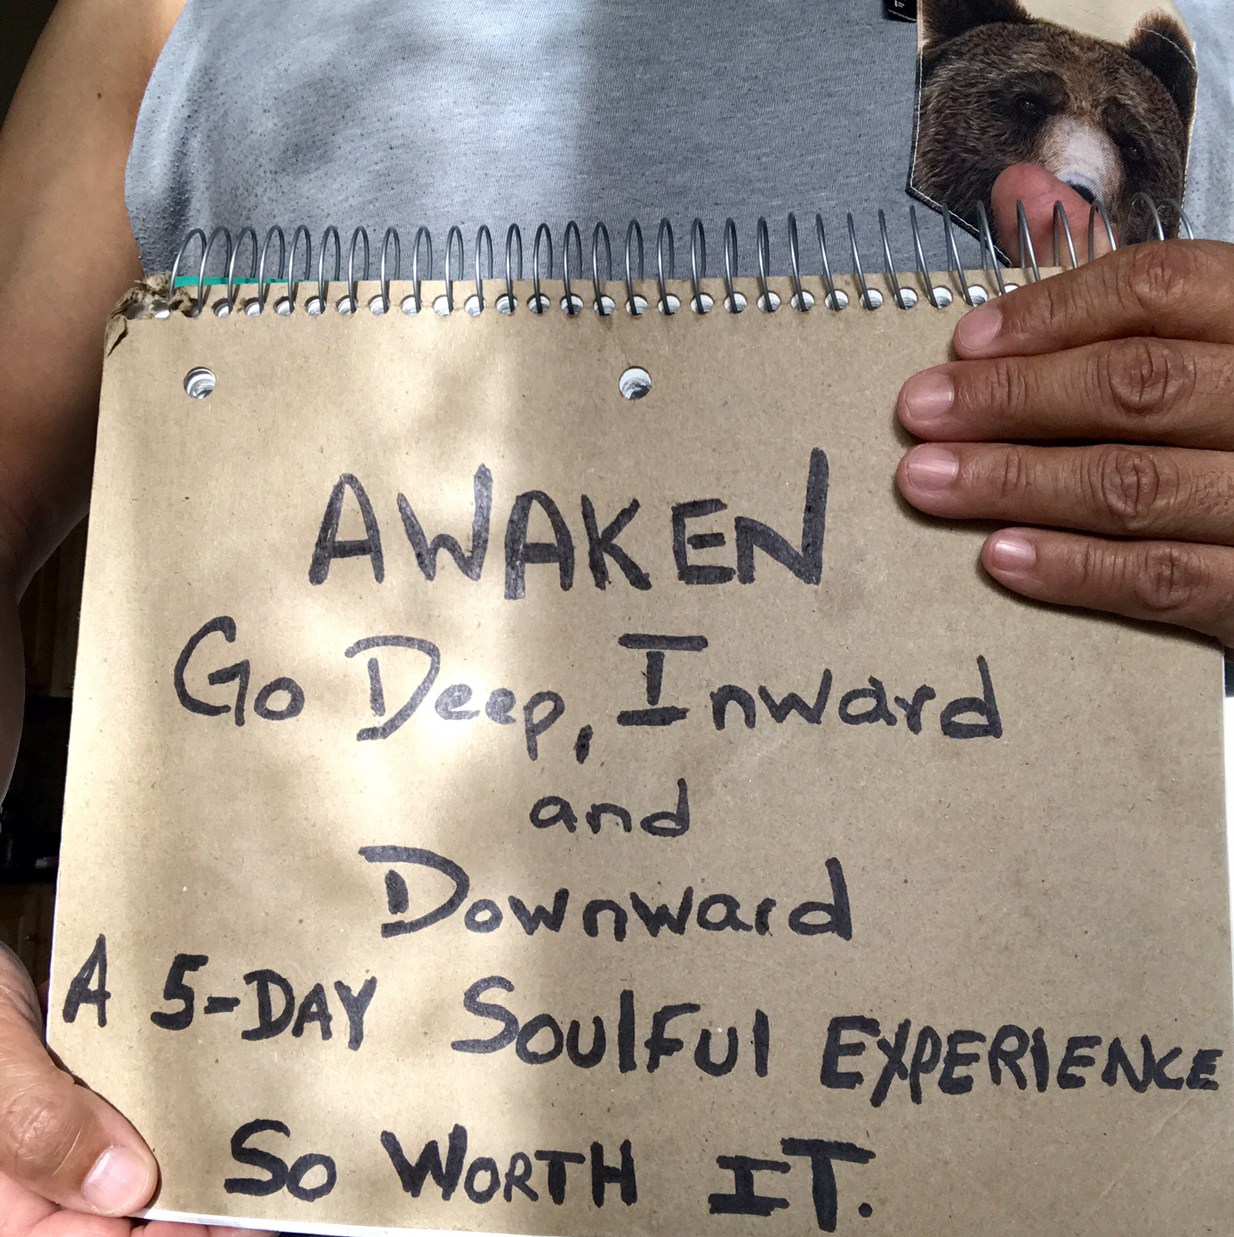 AWAKEN
Go Deep, Inward
and
Downward
A 5-DAY Soulful EXPERIENCE
So WORTH IT.